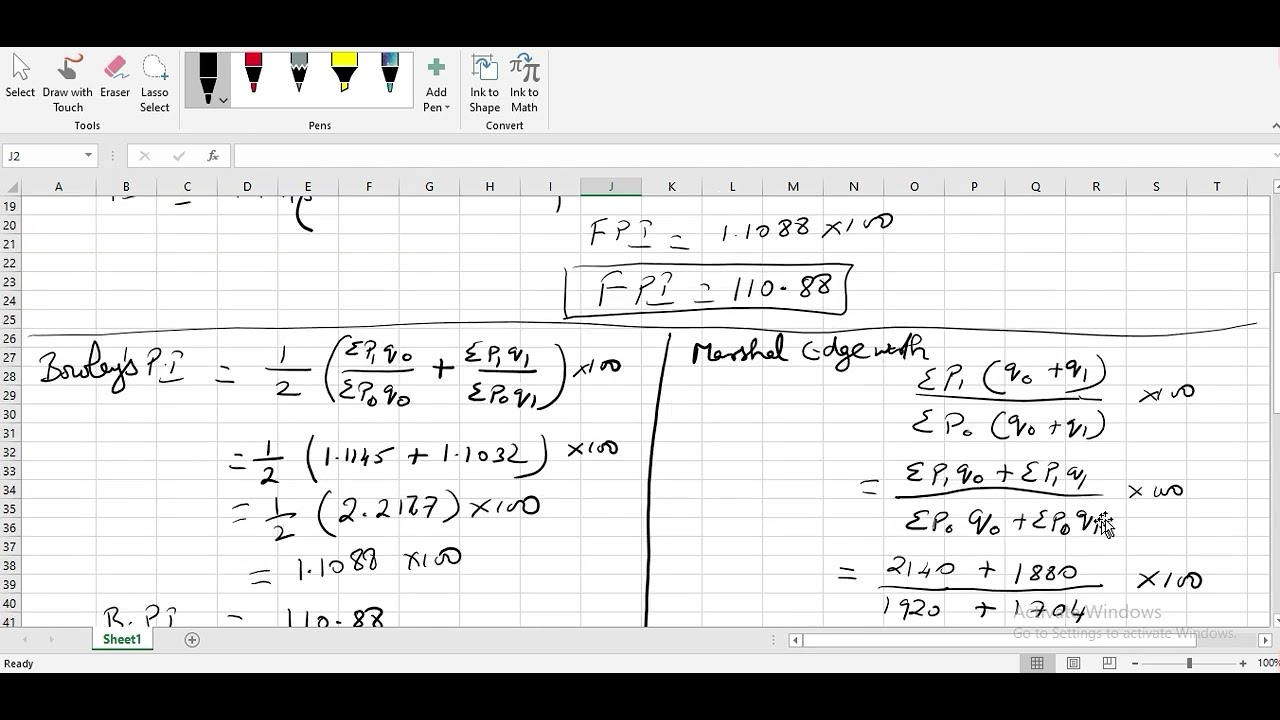 Select
Draw with Touch
Eraser
Lasso Select
Add Pen
Ink to Shape
Ink to Math
Tools
Pens
Convert
J2
fx
A B C D E F G H I J K L M N O P Q R S T
19
20
21
22
23
24
25
26
27
28
29
30
31
32
33
34
35
36
37
38
39
40
41
FPI = 1.1088 ×100
FPI = 110.88
Bowley's P.I = 1/2 (ΣP₁q₀/ΣP₀q₀ + ΣP₁q₁/ΣP₀q₁) ×100
= 1/2 (1.1145 + 1.1032) ×100
= 1/2 (2.2177) ×100
= 1.1088 ×100
B.PI = 110.88
Marshal Edgeworth
ΣP₁ (q₀ + q₁) / ΣP₀ (q₀ + q₁) ×100
= ΣP₁q₀ + ΣP₁q₁ / ΣP₀q₀ + ΣP₀q₁ ×100
= 2140 + 1880 / 1920 + 1704 ×100
Activate Windows
Go to Settings to activate Windows.
Sheet1
Ready
100%